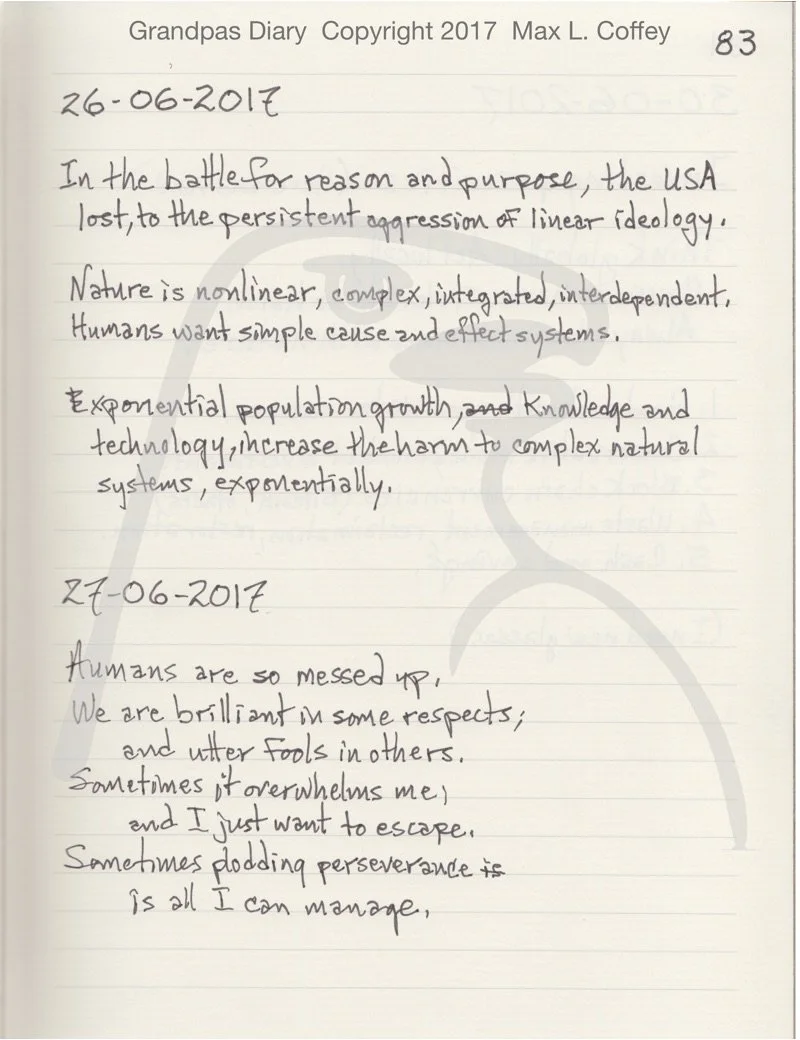 Grandpas Diary Copyright 2017 Max L. Coffey
83
26-06-2017
In the battle for reason and purpose, the USA
lost, to the persistent aggression of linear ideology.
Nature is nonlinear, complex, integrated, interdependent.
Humans want simple cause and effect systems.
Exponential population growth, and Knowledge and
technology, increase the harm to complex natural
systems, exponentially.
27-06-2017
Humans are so messed up.
We are brilliant in some respects;
and utter fools in others.
Sometimes it overwhelms me;
and I just want to escape.
Sometimes plodding perseverance is
is all I can manage.